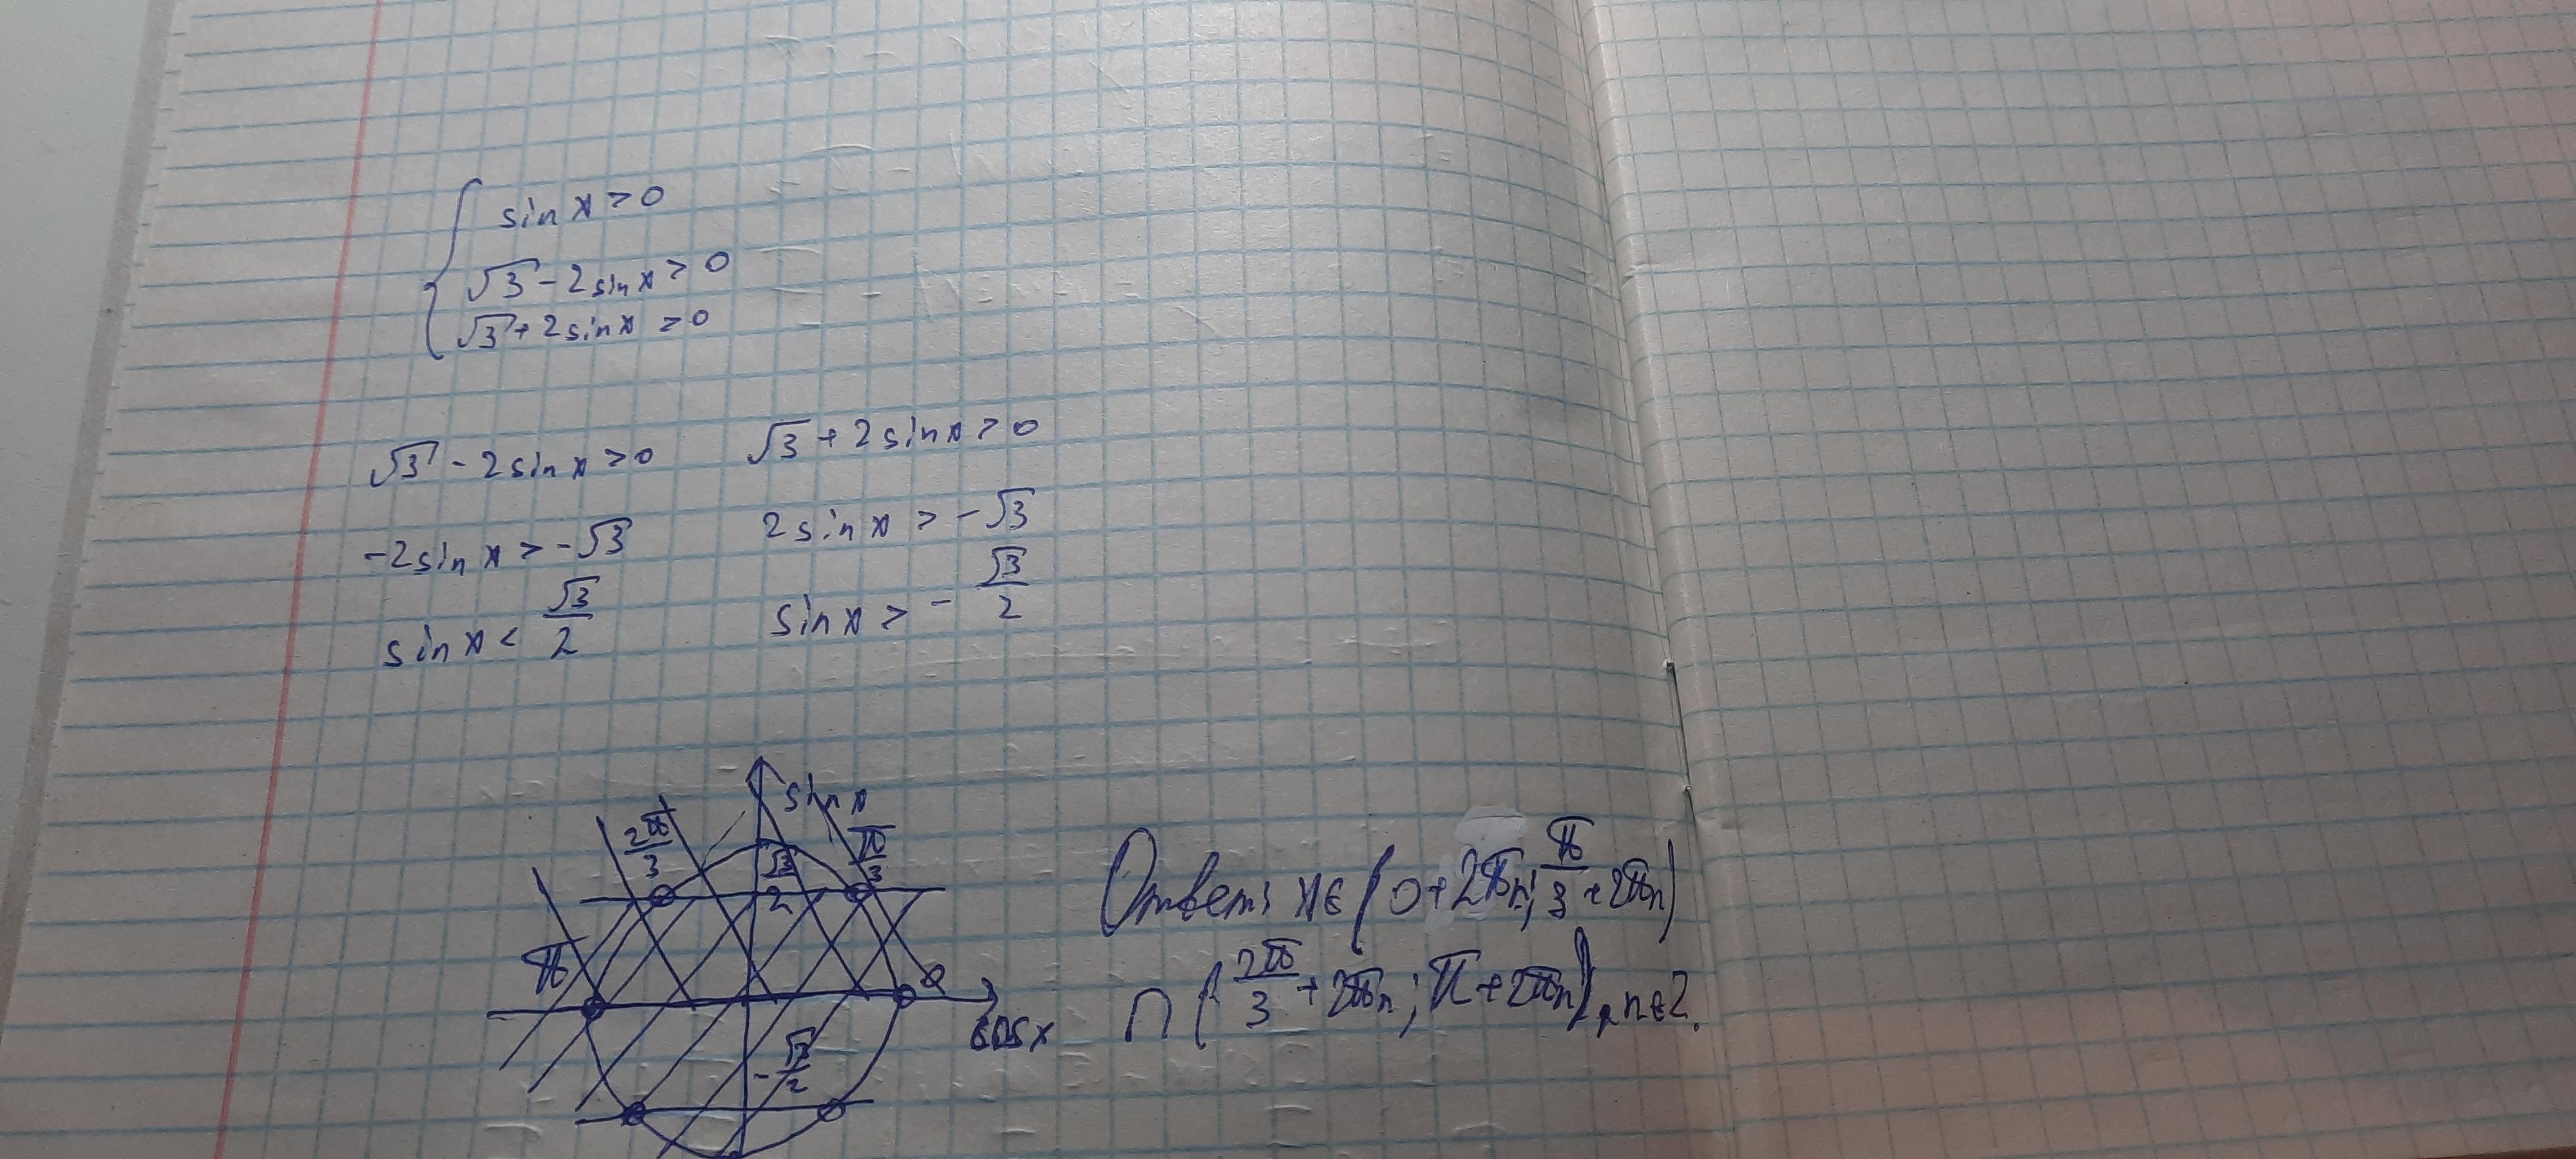 sin x > 0
√3 - 2 sin x > 0
√3 + 2 sin x > 0
√3 - 2 sin x > 0
-2 sin x > -√3
sin x < √3/2
√3 + 2 sin x > 0
2 sin x > -√3
sin x > -√3/2
sin x
2π/3
√3/2
π/3
π
cos x
-√3/2
Ответ: x ∈ (0 + 2πn; π/3 + 2πn)
∩ (2π/3 + 2πn; π + 2πn), n ∈ Z.